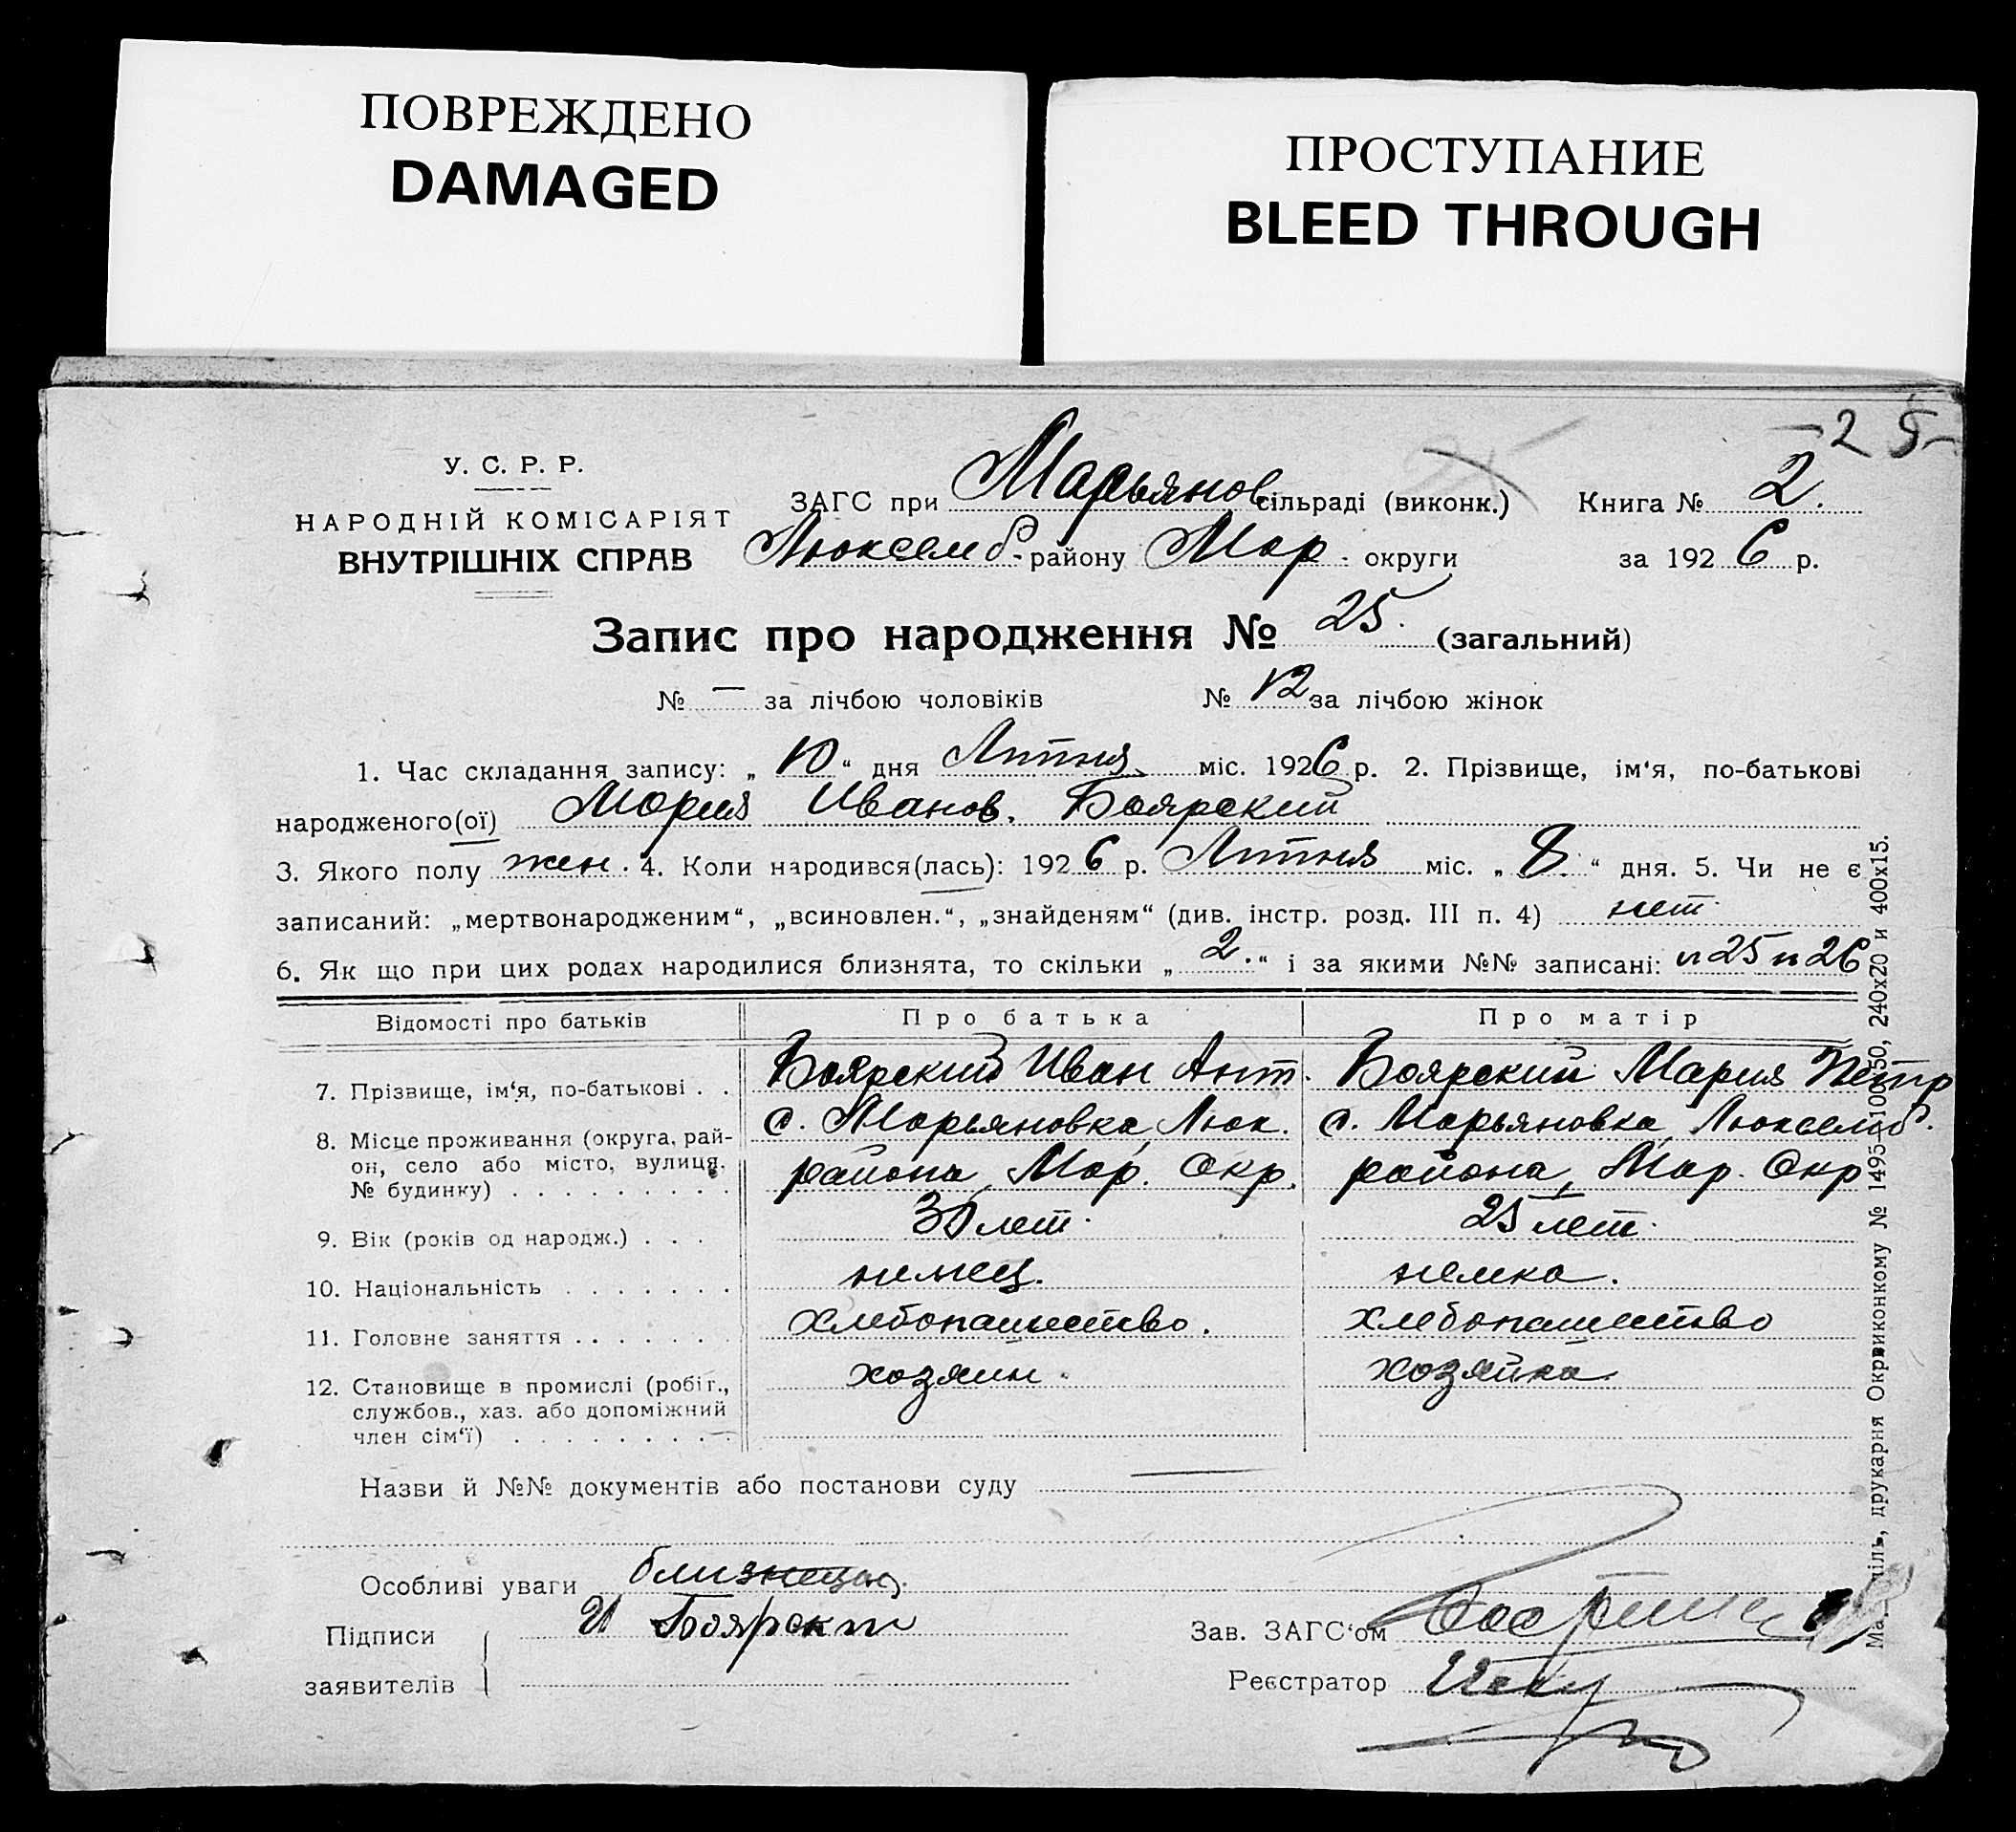 ПОВРЕЖДЕНО
DAMAGED
ПРОСТУПАНИЕ
BLEED THROUGH
- 2 5 -
У. С. Р. Р.
НАРОДНІЙ КОМІСАРІЯТ
ВНУТРІШНІХ СПРАВ
ЗАГС при Марьянов. сільраді (виконк.) Книга № 2.
Люксемб. району Мар. округи за 1926 р.
Запис про народження № 25. (загальний)
№ — за лічбою чоловіків № 12 за лічбою жінок
1. Час складання запису: „10“ дня Липня міс. 1926 р. 2. Прізвище, ім‘я, по-батькові
народженого(ої) Мария Иванов. Боярский
3. Якого полу жен. 4. Коли народився(лась): 1926 р. Липня міс. „8.“ дня. 5. Чи не є
записаний: „мертвонародженим“, „всиновлен.“, „знайденям“ (див. інстр. розд. III п. 4) нет
6. Як що при цих родах народилися близнята, то скільки „2.“ і за якими №№ записані: 25 и 26
Відомості про батьків Про батька Про матір
7. Прізвище, ім‘я, по-батькові . . Боярский Иван Ант. Боярский Мария Петр
8. Місце проживання (округа, рай- с. Марьяновка, Люк. с. Марьяновка, Люксемб.
он, село або місто, вулиця, района, Мар. Окр. района, Мар. Окр
№ будинку) . . . . . . . . .
9. Вік (років од народж.) . . . 30 лет. 25 лет.
10. Національність . . . . . . . немец. немка.
11. Головне заняття . . . . . . . хлебопашество. хлебопашество
12. Становище в промислі (робіт., хозяин. хозяйка
службов., хаз. або допоміжний
член сім‘ї) . . . . . . . . .
Назви й №№ документів або постанови суду —
Особливі уваги близнецы.
Підписи И Боярски Зав. ЗАГС‘ом
заявителів Реєстратор
друкарня Окрвиконкому № 1495—10050, 240x20 и 400x15.